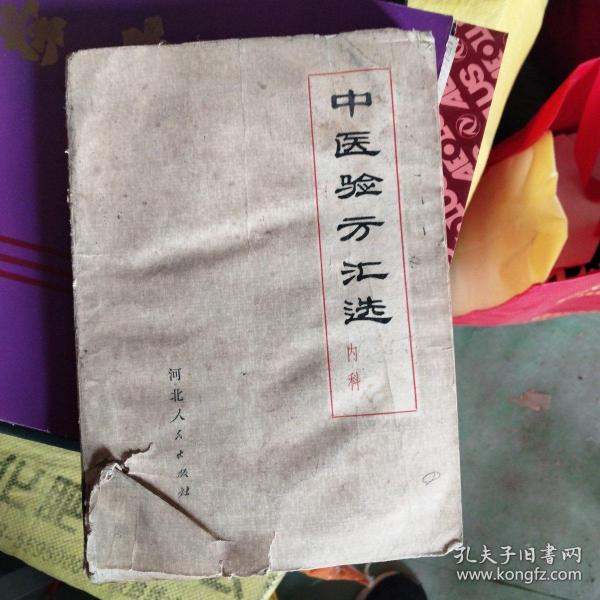 中医验方汇选
内科
河北人民出版社
孔夫子旧书网
www.kongfz.com